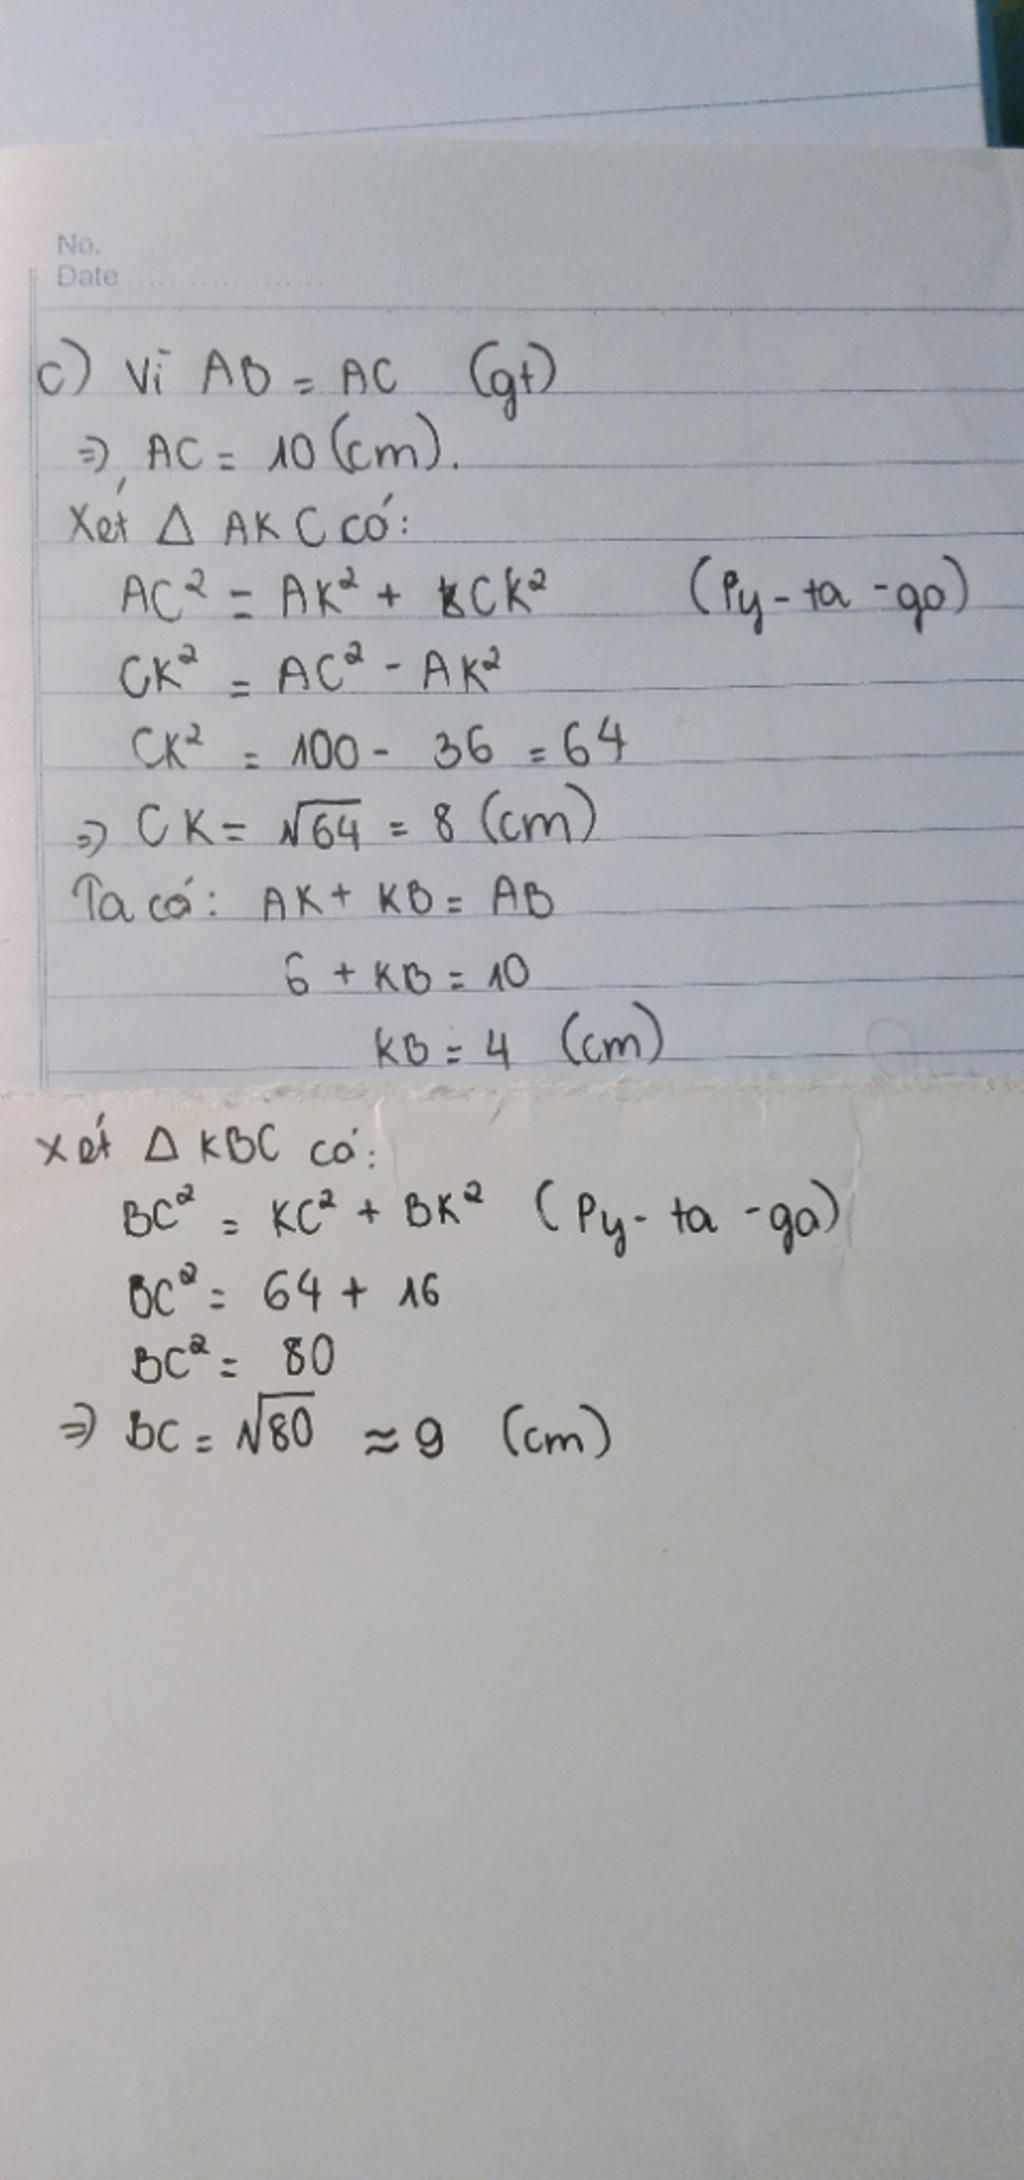 No.
Date
c) Vì AB = AC (gt)
⇒ AC = 10 (cm).
Xét Δ AKC có:
AC² = AK² + CK² (Py-ta-go)
CK² = AC² - AK²
CK² = 100 - 36 = 64
⇒ CK = √64 = 8 (cm)
Ta có: AK + KB = AB
6 + KB = 10
KB = 4 (cm)
Xét Δ KBC có:
BC² = KC² + BK² (Py-ta-go)
BC² = 64 + 16
BC² = 80
⇒ BC = √80 ≈ 9 (cm)